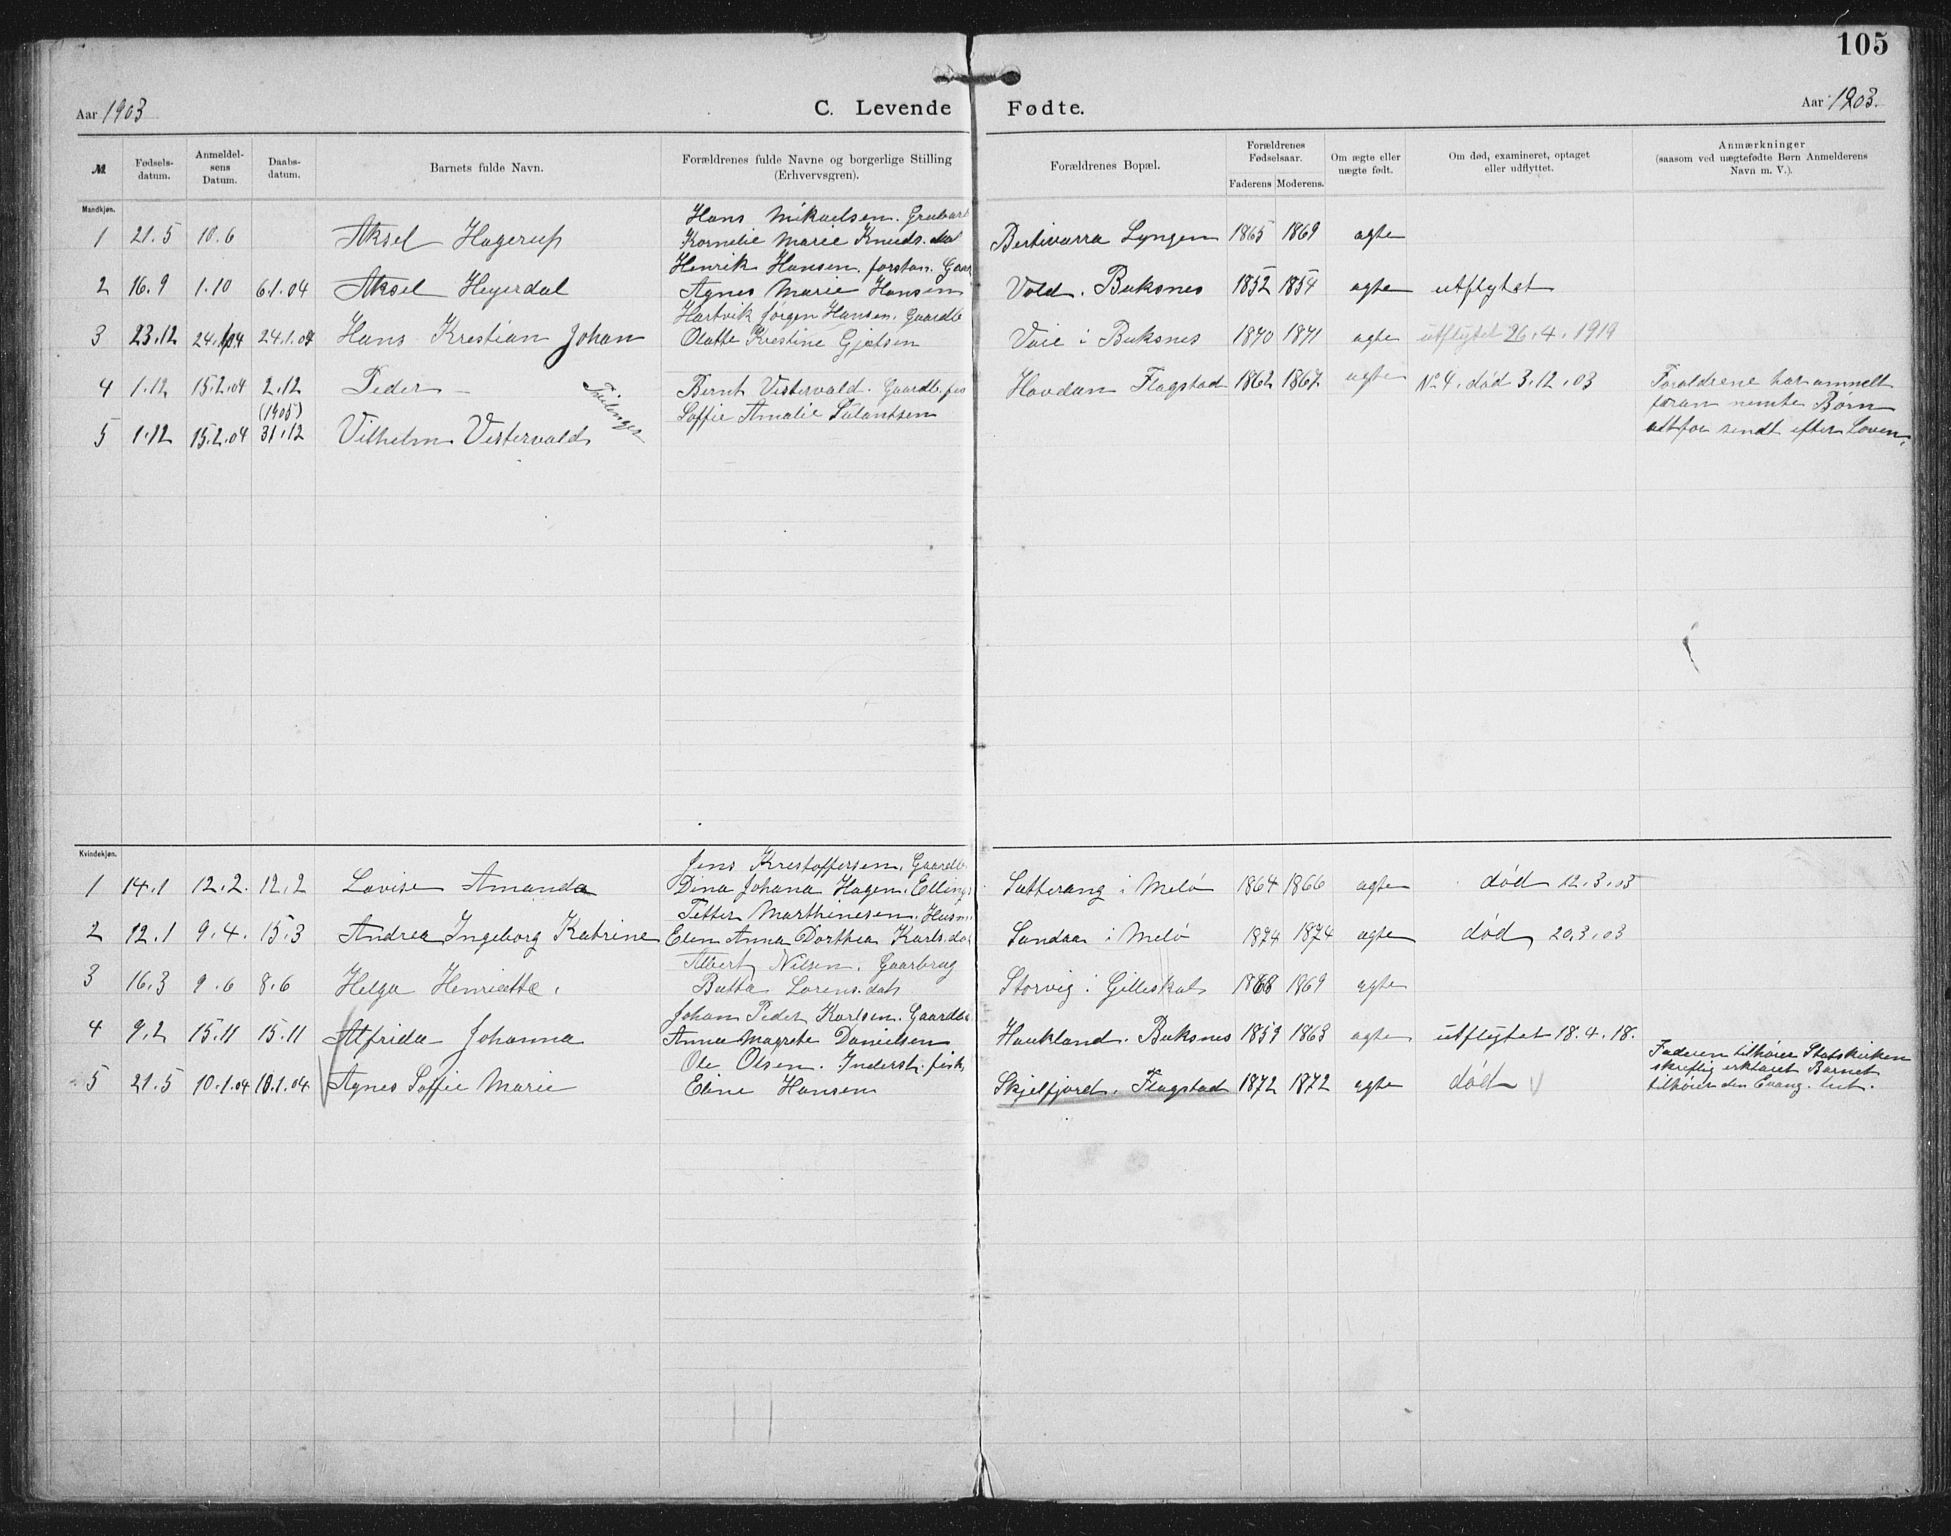 105
Aar 1903 C. Levende Fødte. Aar 1903.
№ Fødsels-datum. Anmeldel-sens Datum. Daabs-datum. Barnets fulde Navn. Forældrenes fulde Navne og borgerlige Stilling (Erhvervsgren). Forældrenes Bopæl. Forældrenes Fødselsaar. Faderens Moderens. Om ægte eller uægte født. Om død, examineret, optaget eller udflyttet. Anmærkninger (saasom ved uægtefødte Børn Anmelderens Navn m. V.).
Mandkjøn.
Hans Mikaelsen.
1 21.5 10.6 Aksel Hagerup Kornelie Marie Knuds. Lyngen 1865 1869 ægte
Henrik Hansen. forstan.
2 16.9 1.10 6.1.04 Aksel Heyerdal Agnes Marie Hansen Vold. Buksnes 1852 1854 ægte utflytet
Hartvik Jørgen Hansen. Gaardb
3 23.12 24.1.04 24.1.04 Hans Krestian Johan Olette Krestine Gjetsen Vaie i Buksnes 1870 1871 ægte utflytet 26.4.1919
4 1.12 15.2.04 2.12 Peder — Trilinger Bernt Vestervald. Gaardb. fis Hovdan Flagstad 1862 1867 ægte No 4. død 3.12.03 Foraldrene har anmelt
(1905) Soffie Amalie foran nemte Børn
5 1.12 15.2.04 31.12 Vilhelm Vestervald alt for sendt efter Loven.
Kvindekjøn.
Jens Krestoffersen. Gaardb
1 14.1 12.2. 12.2 Lovise Amanda Dina Johana Hagen. Ellings i Melö 1864 1866 ægte død 12.3.03
Petter Marthinesen. Husm.
2 12.1 9.4. 15.3 Andrea Ingeborg Katrine Elen Anna Dorthea Karls.dat Sandaa i Melö 1874 1874 ægte død 20.3.03
Albert Nilsen. Gaarbrug
3 16.3 9.6 8.6 Helga Henriette. Lorens.dat Storvig i Gilleskal 1868 1869 ægte
Johan Peder Karlsen. Gaardb.
4 9.2 15.11 15.11 Alfrida Johanna Anna Magrete Danielsen Haukland. Buksnes 1859 1863 ægte utflytet 18.4.18.
Ole Olsen. Inderst. fisk Faderen tilhører Statskirken
5 21.5 10.1.04 10.1.04 Agnes Soffie Marie Eline Hansen Skjelfjord. Flagstad 1872 1872 ægte død skriftlig erklaret Barnet
tilhører den Evang. lut.